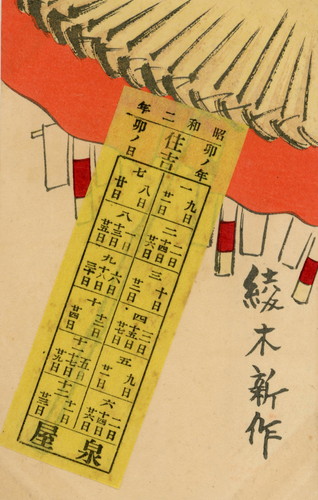 昭和二年
卯ノ年
住吉
卯ノ日
一 九日 廿一日
二 二日 十四日 廿六日
三 十日 廿二日
四 三日 十五日 廿七日
五 九日 廿一日
六 二日 十四日 廿六日
七 八日 廿日
八 一日 十三日 廿五日
九 六日 十八日 三十日
十 十二日 廿四日
十一 五日 十七日 廿九日
十二 十一日 廿三日
泉屋
綾木新作